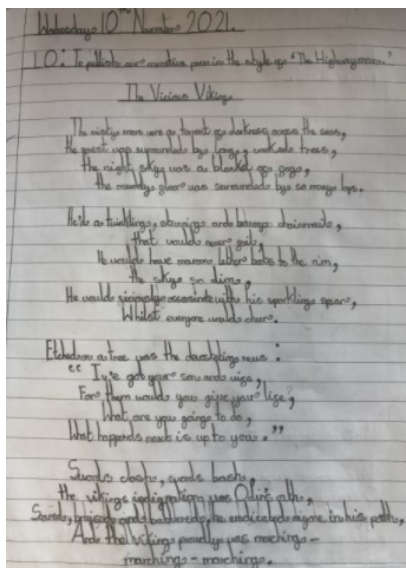 Wednesday 10th November 2021.
LO: To publish our narrative poem in the style of "The Highwayman."
The Vicious Viking
The misty moon was a torrent of darkness across the seas,
the forest was surrounded by large, trees,
the night sky was a blanket of fogs,
the muddy floor was surrounded by so many logs.
He'd a twinkling, stunning and chainmail,
that would never fail,
He would have maroon, leather boots to the rim,
the sky so dim,
He would viciously assassinate with his sparkling spear,
Whilst everyone would cheer.
Etched on a tree was the news:
"I've got your son and wife,
For them would you give your life,
What are you going to do,
What happends next is up to you."
Swords clash, swords bash,
the vikings was Odin's
Scared, and he anyone in his path,
And the viking proudly was marching -
marching - marching.